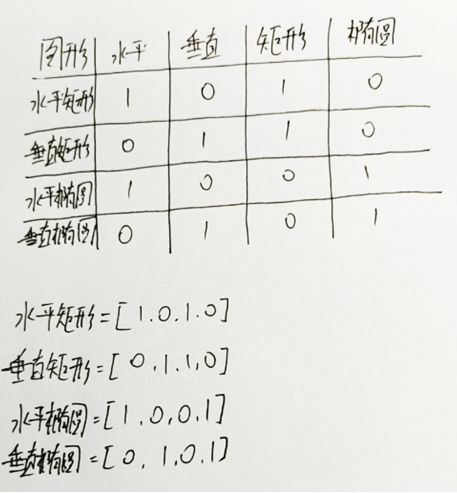 图形 水平 垂直 矩形 椭圆
水平矩形 1 0 1 0
垂直矩形 0 1 1 0
水平椭圆 1 0 0 1
垂直椭圆 0 1 0 1
水平矩形=[1.0.1.0]
垂直矩形=[0,1.1,0]
水平椭圆=[1.0,0,1]
垂直椭圆=[0,1,0,1]